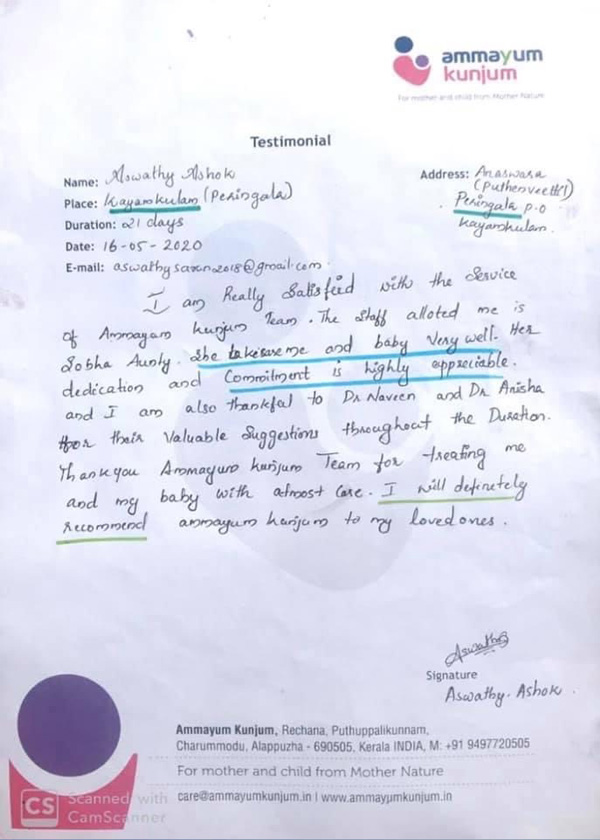 ammayum
kunjum
For mother and child from Mother Nature
Testimonial
Name: Aswathy Ashok
Place: Kayamkulam (Peringala)
Duration: 21 days
Date: 16-05-2020
E-mail: aswathysavan2018@gmail.com.
Address: Anaswara
(Puthenveettil)
Peringala P.O
Kayamkulam.
I am Really Satisfied with the Service
of Ammayum kunjum Team. The Staff alloted me is
Sobha Aunty. She takecare me and baby Very well. Her
dedication and Commitment is highly appreciable.
and I am also thankful to Dr Naveen and Dr. Anisha
for their Valuable Suggestions throughout the Duration.
Thankyou Ammayum kunjum Team for treating me
and my baby with atmost care. I will definetely
recommend ammayum kunjum to my lovedones.
Aswathy
Signature
Aswathy. Ashok.
Ammayum Kunjum, Rechana, Puthuppalikunnam,
Charummodu, Alappuzha - 690505, Kerala INDIA, M: +91 9497720505
For mother and child from Mother Nature
care@ammayumkunjum.in I www.ammayumkunjum.in
CS Scanned with
CamScanner